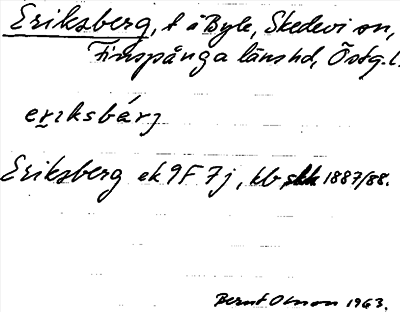 Eriksberg, t å Byle, Skedevi sn,
Finspånga länshd, Östg.l.
erıksbárj
Eriksberg ek 9F7j, kb skk 1887/88.
Bernt Olsson 1963.